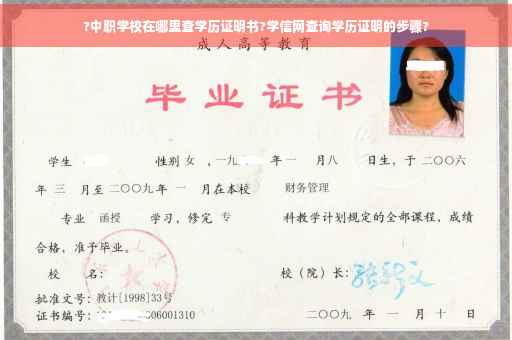 ?中职学校在哪里查学历证明书?学信网查询学历证明的步骤?
成人高等教育
毕业证书
学生 性别 女 ，一九 年 一 月 八 日生，于 二〇〇六
年 三 月至 二〇〇九 年 一 月在本校 财务管理
专业 函授 学习，修完 专 科教学计划规定的全部课程，成绩
合格，准予毕业。
校 名： 校（院）长：
批准文号：教计[1998]33号
证书编号： 06001310 二〇〇九 年 一 月 十 日